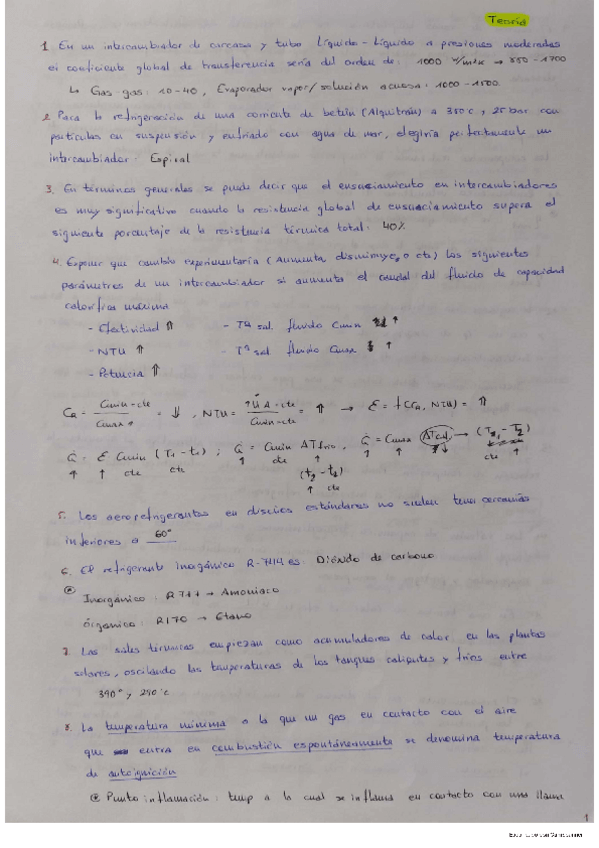 Teoría
1. En un intercambiador de carcasa y tubo líquido-líquido a presiones moderadas
el coeficiente global de transferencia sería del orden de: 1000 W/m²K → 850-1700
↳ Gas-gas: 10-40, Evaporador vapor/solución acuosa: 1000-1500
2. Para la refrigeración de una corriente de betún (Alquitrán) a 350°C y 25 bar con
partículas en suspensión y enfriado con agua de mar, elegiría preferentemente un
intercambiador: Espiral
3. En términos generales se puede decir que el ensuciamiento en intercambiadores
es muy significativo cuando la resistencia global de ensuciamiento supera el
siguiente porcentaje de la resistencia térmica total: 40%
4. Exponer que cambio experimentaría (Aumenta, disminuye o cte) los siguientes
parámetros de un intercambiador si aumenta el caudal del fluido de capacidad
calorífica máxima
- Efectividad ⇑ - Tª sal. fluido Cmin ↑
- NTU ⇑ - Tª sal fluido Cmax ↑
- Potencia ⇑
CR = Cmin-cte / Cmax ↑ = ⇓ , NTU = ↑U A-cte / Cmin-cte = ⇑ → ε = f(CR, NTU) = ⇑
Q̇ = ε Cmin (T1-t1) ; Q̇ = Cmin ΔTfrio , Q̇ = Cmax ΔTcal → (T1 - T2)
↑ ↑ cte cte ↑ cte (t2-t1) ↑ ↑ ↑↓ cte ↑
↑ cte
5. Los aerorefrigerantes en diseños estándares no suelen tener cercanías
inferiores a 60°
6. El refrigerante inorgánico R-744 es: Dióxido de carbono
Inorgánico: R717 → Amoniaco
Orgánico: R170 → Etano
7. Las sales térmicas empiezan como acumuladores de calor en las plantas
solares, oscilando las temperaturas de los tanques calientes y fríos entre
390° y 290°C
8. La temperatura mínima a la que un gas en contacto con el aire
que entra en combustión espontáneamente se denomina temperatura
de autoignición
Punto inflamación: temp a la cual se inflama en contacto con una llama
1